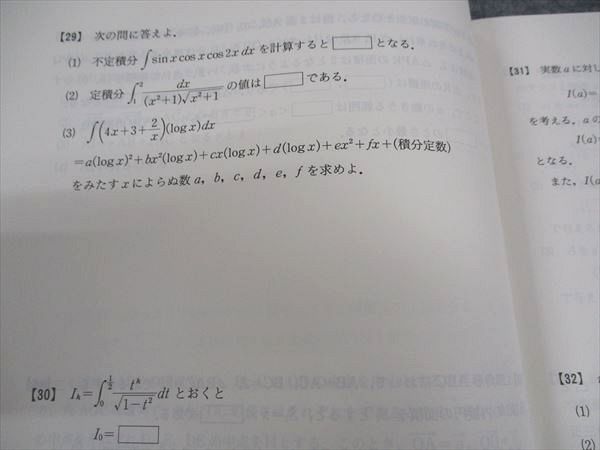 【29】 次の問に答えよ.
(1) 不定積分 ∫sin x cos x cos 2x dx を計算すると□となる.
(2) 定積分 ∫₁² dx/((x²+1)√(x²+1)) の値は□である.
(3) ∫(4x+3+2/x)(log x)dx
=a(log x)²+bx²(log x)+cx(log x)+d(log x)+ex²+fx+(積分定数)
をみたす x によらぬ数 a, b, c, d, e, f を求めよ.
【30】 Iₖ=∫₀^(1/2) tᵏ/√(1-t²) dt とおくと
I₀=□
【31】 実数 a に対し
I(a)=
を考える. a の
I(a)
となる.
また, I(a)
【32】
(1)
(2)